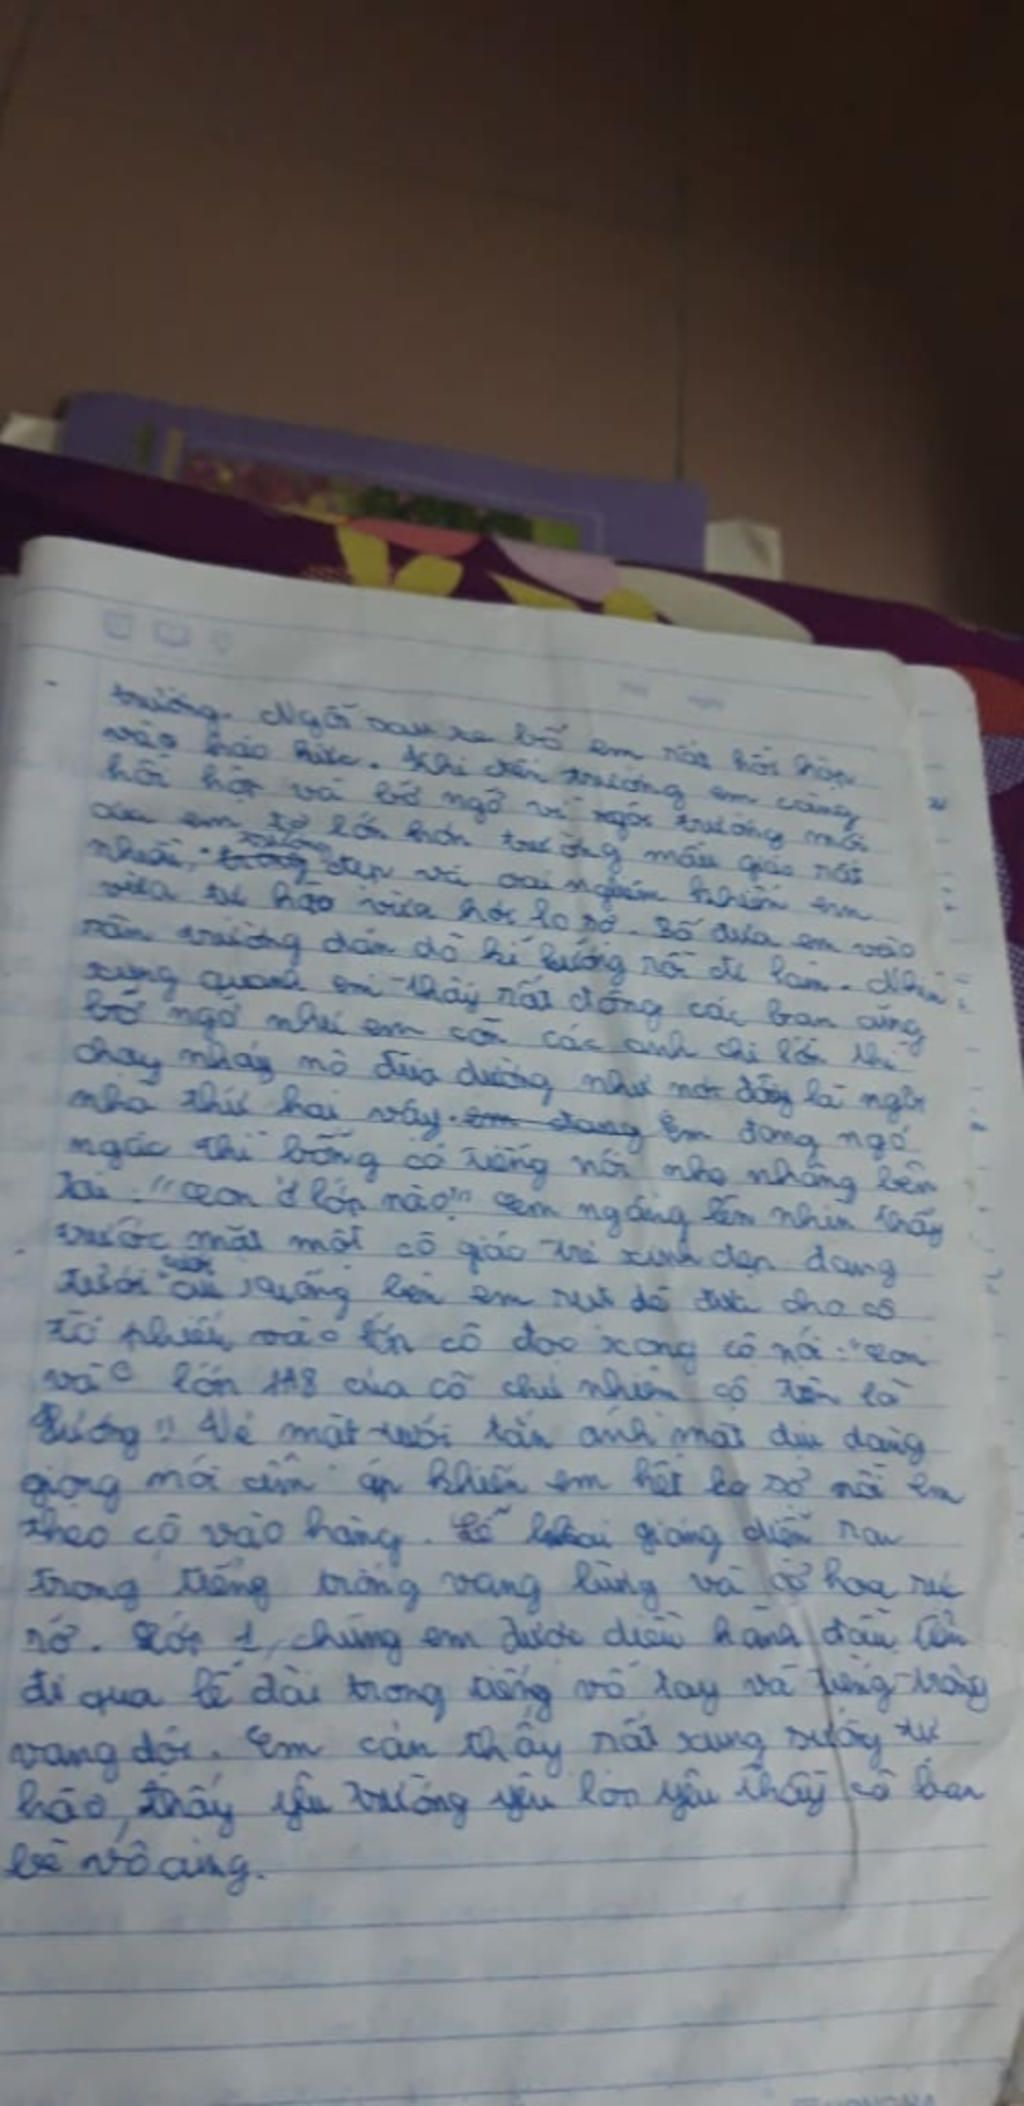 trường. Ngồi sau xe bố em rất hồi hộp
và háo hức. Khi đến trường em càng
hồi hộp và bỡ ngỡ vì ngôi trường mới
của em to lớn hơn trường mẫu giáo rất
nhiều, trường đẹp và oai nghiêm khiến em
vừa tự hào vừa hơi lo sợ. Bố đưa em vào
sân trường dặn dò kĩ lưỡng rồi đi làm. Nhìn
xung quanh em thấy rất đông các bạn cũng
bỡ ngỡ như em còn các anh chị lớn thì
chạy nhảy nô đùa dường như nơi đây là ngôi
nhà thứ hai vậy. em đang Em đang ngơ
ngác thì bỗng có tiếng nói nhẹ nhàng bên
tai: "Con ở lớp nào?" Em ngẩng lên nhìn thấy
trước mặt một cô giáo trẻ xinh đẹp đang
tươi cười xuống bên em rụt dè đưa cho cô
tờ phiếu vào lớp cô đọc xong cô nói: "Con
và lớp 1A8 của cô chủ nhiệm cô tên là
Hương" Vẻ mặt tươi tắn ánh mắt dịu dàng
giọng nói ấm áp khiến em hết lo sợ nối em
theo cô vào hàng. Lễ khai giảng diễn ra
trong tiếng trống vang lừng và cờ hoa rực
rỡ. Lớp 1, chúng em được diễu hành đầu tiên
đi qua lễ đài trong tiếng vỗ tay và tiếng trống
vang dội. Em cảm thấy rất sung sướng tự
hào, thấy yêu trường yêu lớp yêu thầy cô bạn
bè vô cùng.